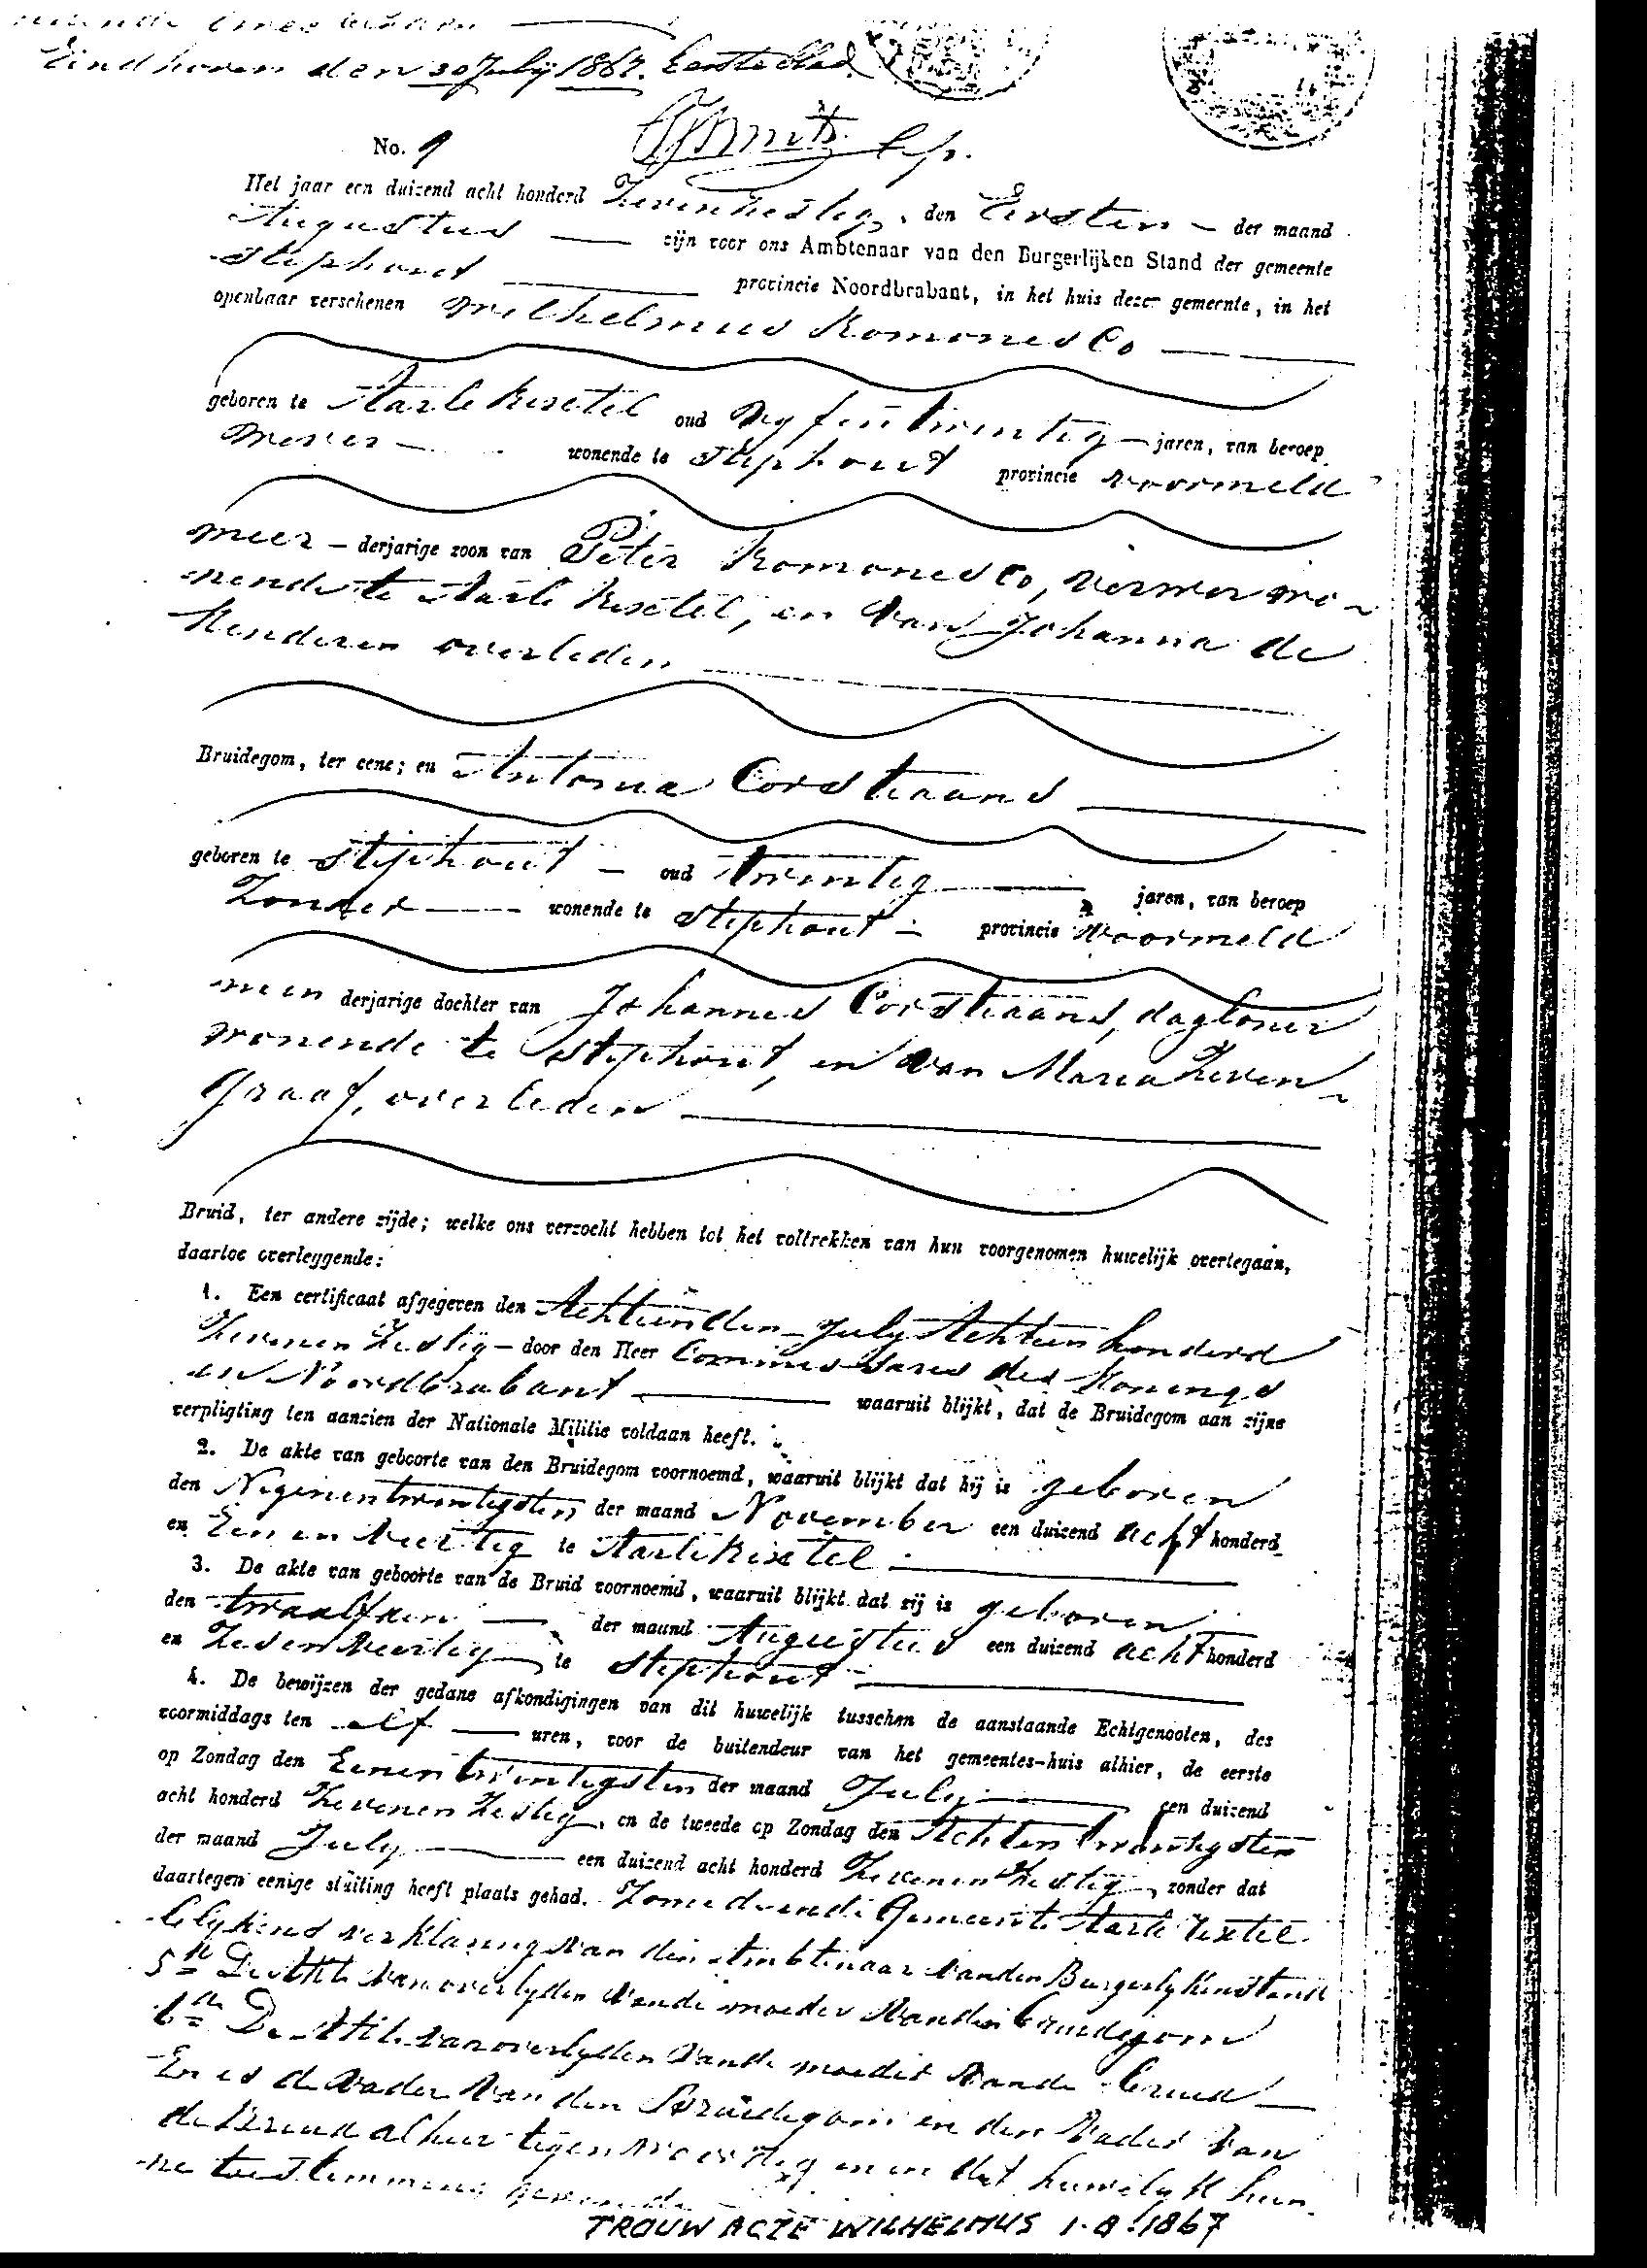 Eindhoven den 30 July 1867. Eerste blad
No. 9
Het jaar een duizend acht honderd Zevenzestig, den Eersten der maand
Augustus zijn voor ons Ambtenaar van den Burgerlijken Stand der gemeente
Stiphout provincie Noordbrabant, in het huis dezer gemeente, in het
openbaar verschenen Wilhelmus Romonesco
geboren te Aarle Rixtel oud Vyfentwintig jaren, van beroep
Wever wonende te Stiphout provincie voormeld
meer derjarige zoon van Peter Romonesco, verwer wo-
nende te Aarle Rixtel, en van Johanna de
Kinderen overleden
Bruidegom, ter eene; en Antonia Corstiaans
geboren te Stiphout oud twintig jaren, van beroep
Zonder wonende te Stiphout provincie voormeld
min derjarige dochter van Johannes Corstiaans, dagloner
wonende te Stiphout, en van Maria Zeven-
graaf, overleden
Bruid, ter andere zijde; welke ons verzocht hebben tot het voltrekken van hun voorgenomen huwelijk overtegaan,
daartoe overleggende:
1. Een certificaat afgegeven den Achttienden July Achttien honderd
Zevenen Zestig door den Heer Commissaris des Konings
in Noordbrabant waaruit blijkt, dat de Bruidegom aan zijne
verpligting ten aanzien der Nationale Militie voldaan heeft.
2. De akte van geboorte van den Bruidegom voornoemd, waaruit blijkt dat hij is geboren
den Negenentwintigsten der maand November een duizend acht honderd
en Een en Veertig te Aarle Rixtel
3. De akte van geboorte van de Bruid voornoemd, waaruit blijkt dat zij is geboren
den twaalfden der maand Augustus een duizend acht honderd
en Zesenveertig te Stiphout
4. De bewijzen der gedane afkondigingen van dit huwelijk tusschen de aanstaande Echtgenooten, des
voormiddags ten elf uren, voor de buitendeur van het gemeentes-huis alhier, de eerste
op Zondag den Eenentwintigsten der maand July een duizend
acht honderd Zevenen Zestig, en de tweede op Zondag den Achtentwintigsten
der maand July een duizend acht honderd Zevenen Zestig, zonder dat
daartegen eenige stuiting heeft plaats gehad. Zomede in de Gemeente Aarle Rixtel
blykens verklaring van den Ambtenaar van den Burgerlyken Stand
5de De Akte van overlyden van de moeder van den bruidegom
6de De Akte van overlyden van de moeder van de bruid
En is de Vader van den Bruidegom en den Vader van
de Bruid alhier tegenwoordig en in dit huwelyk hun
ne toestemming gevende
TROUW ACTE WILHELMUS 1.8.1867